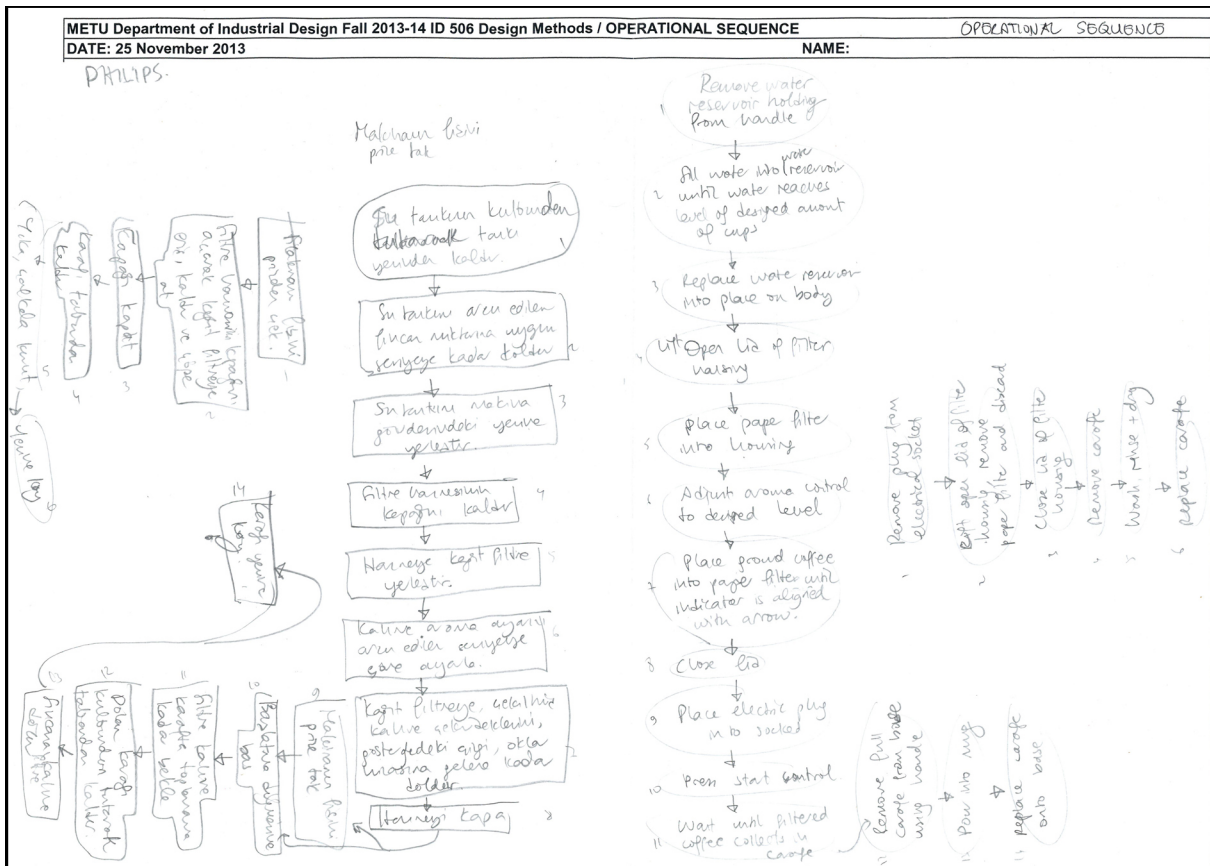 METU Department of Industrial Design Fall 2013-14 ID 506 Design Methods / OPERATIONAL SEQUENCE
OPERATIONAL SEQUENCE
DATE: 25 November 2013
NAME:
PHILIPS.
prize tak
Su tankının kulbundan
tutarak tankı
yerinden kaldır.
1
Su tankını arzu edilen
fincan miktarına uygun
seviyeye kadar doldur
2
Su tankını makina
gövdesindeki yerine
yerleştir.
3
Filtre haznesinin
kapağını kaldır
4
Hazneye kağıt filtre
yerleştir.
5
Kahve aroma ayarını
arzu edilen seviyeye
göre ayarla.
6
Kağıt filtreye, çekilmiş
kahve çekirdeklerini,
göstergedeki çizgi, oklar
hizasına gelene kadar
doldur.
7
Hazneyi kapa
8
Makinanın fişini
prize tak
9
Başlatma düğmesine
bas.
10
Filtre kahve
karafta toplanana
kadar bekle
11
Dolan karafı
kulbundan tutarak
tabandan kaldır.
12
13
Karafı yerine
koy.
14
Makinanın fişini
prizden çek.
1
Filtre haznesinin kapağını
açarak kağıt filtreye
eriş, kaldır ve çöpe
at
2
Kapağı kapat
3
Karafı tabandan
kaldır
4
Yıka, çalkala kurut,
5
yerine koy
6
1
Remove water
reservoir holding
from handle
2
Fill water into water reservoir
until water reaches
level of desired amount
of cups
3
Replace water reservoir
into place on body
4
Lift Open lid of filter
housing
5
Place paper filter
into housing
6
Adjust aroma control
to desired level
7
Place ground coffee
into paper filter until
indicator is aligned
with arrow.
8 Close lid
9
Place electric plug
into socket
10
Press start control.
11
Wait until filtered
coffee collects in
carafe
12
Remove full
carafe from base
using handle
13
Pour into mug
14
Replace carafe
onto base
1
Remove plug from
electrical socket
2
Lift open lid of filter
housing, remove
paper filter and discard
3
Close lid of filter
housing
4
Remove carafe
5
Wash, rinse + dry
6
Replace carafe